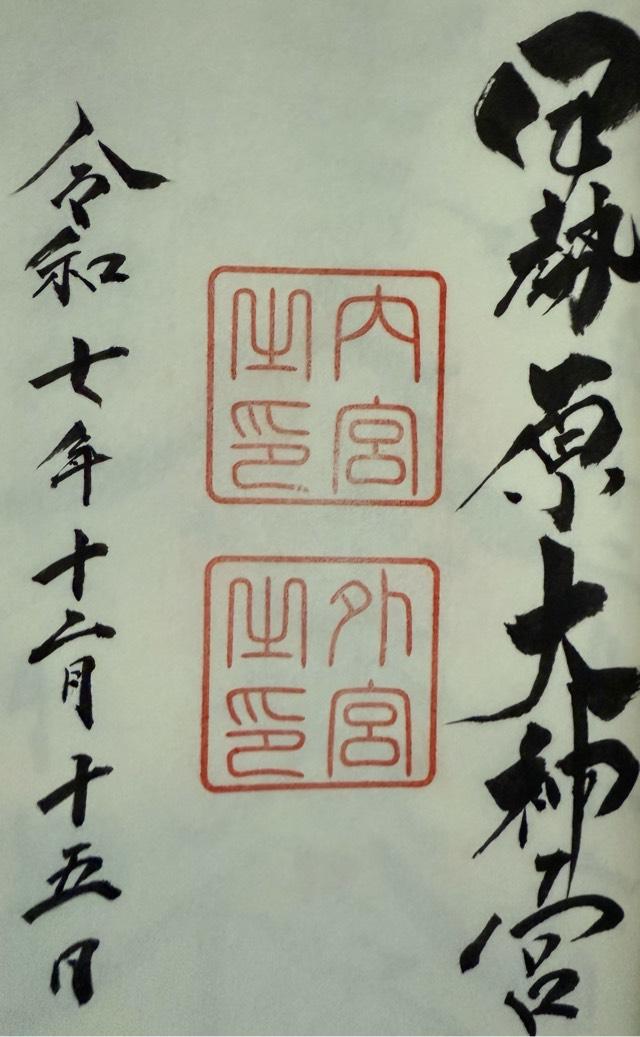 伊勢原大神宮
内宮
之印
外宮
之印
令和七年十二月十五日